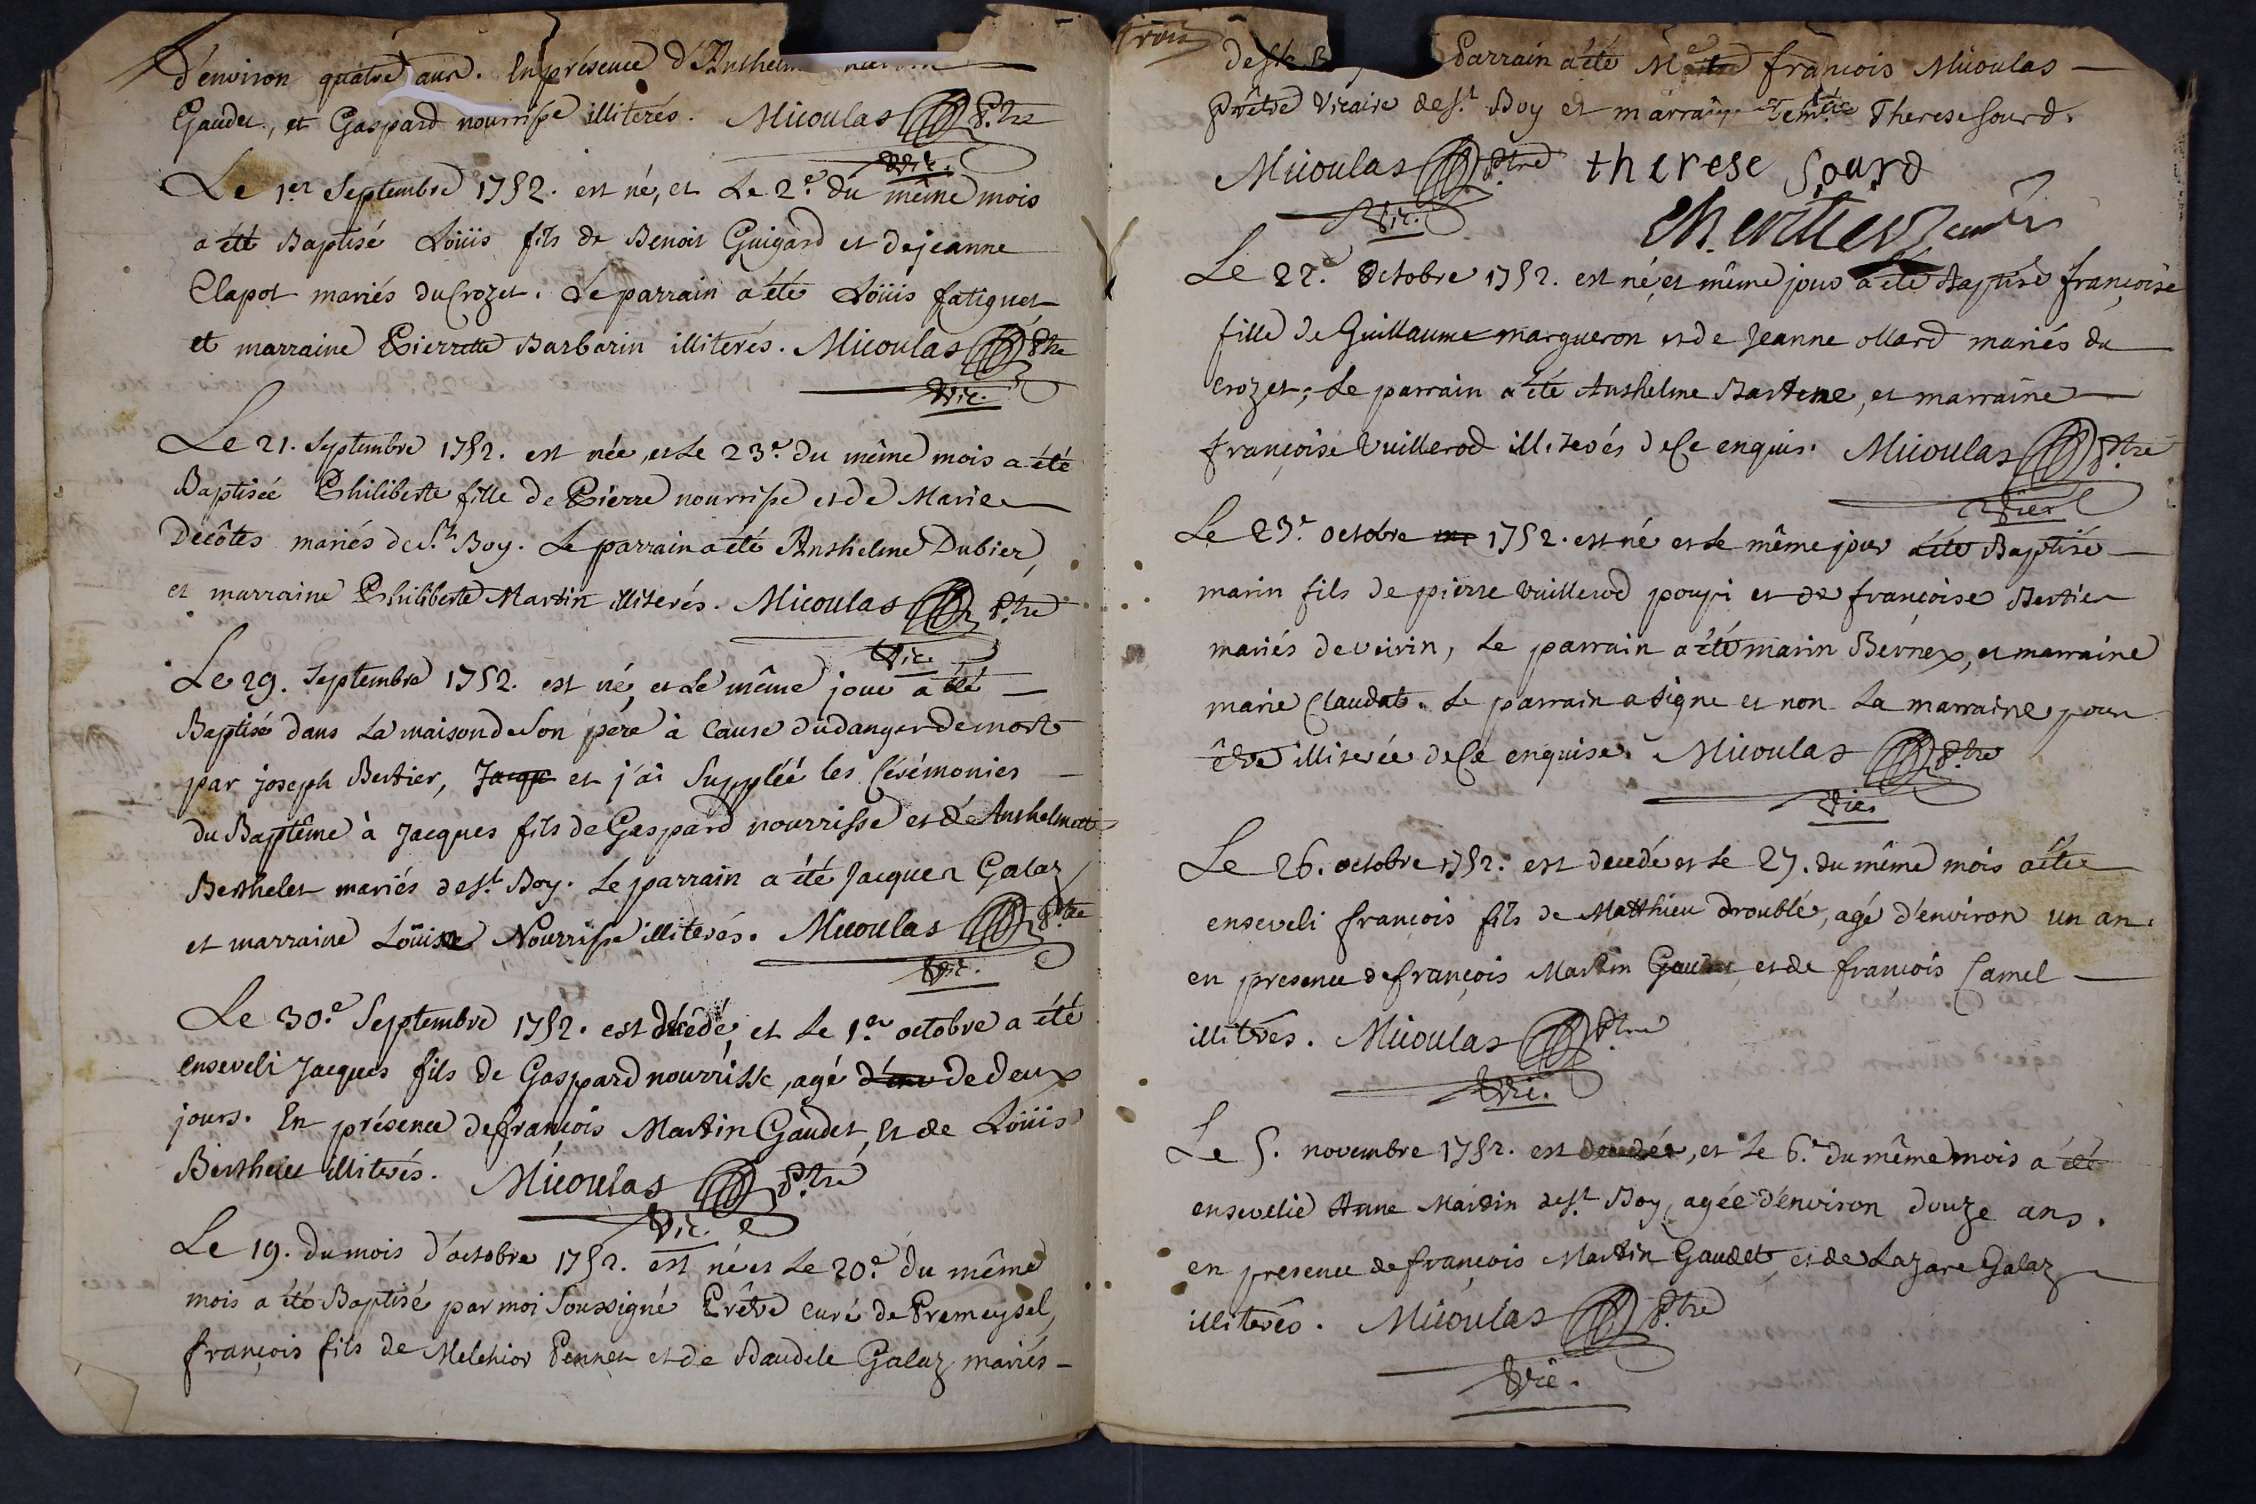 d'environ quatre ans. En présence d'Anthelm
Gaudet, et Gaspard nourrisse illiterés. Micoulas Ptre
Vic.
Le 1er Septembre 1752. est né, et Le 2e. du même mois
a été Baptisé Loüis fils de Benoit Guigard et de jeanne
Clapot mariés du Crozet. Le parrain a été Loüis fatiguet
et marraine Pierrette Barbarin illiterés. Micoulas Ptre
Vic.
Le 21. Septembre 1752. est née, et Le 23e. du même mois a été
Baptisée Philiberte fille de Pierre nourrisse et de Marie
Decôtes mariés de St. Boy. Le parrain a été Anthelme Dubier,
et marraine Philiberte Martin illiterés. Micoulas Ptre
Vic.
Le 29. Septembre 1752. est né, et Le même jour a été
Baptisé dans La maison de Son pere à Cause du danger de mort
par joseph Bertier, Jaque et j'ai Supplée les Cérémonies
du Baptême à Jacques fils de Gaspard nourrisse et de Anthelmette
Berthelet mariés de St. Boy. Le parrain a été Jacques Galaz
et marraine Loüise Nourrisse illiterés. Micoulas Ptre
Vic.
Le 30e. Septembre 1752. est décédé, et Le 1er. octobre a été
enseveli Jacques fils de Gaspard nourrisse, agé de deux
jours. En présence de françois Martin Gaudet, Et de Loüis
Berthelet illiterés. Micoulas Ptre
Vic.
Le 19. du mois d'octobre 1752. est né et Le 20e. du même
mois a été Baptisé par moi Soussigné Prêtre curé de Premeysel,
françois fils de Melchior Pennet et de Baudile Galaz mariés
trois
de St. B Parrain a été Me françois Micoulas
Prêtre Vicaire de St. Boy et marraine Therese Sourd.
Micoulas Ptre therese Sourd
Vic.
Le 22e. Octobre 1752. est né, et même jour a été Baptisé françoise
fille de Guillaume margueron et de Jeanne ollard mariés du
crozet; Le parrain a été Anthelme Bartene, et marraine
françoise Vuillerod illiterés de Ce enquis. Micoulas Ptre
Vic.
Le 23e. octobre 1752. est né et Le même jour a été Baptisé
marin fils de pierre Vuillerod poupi et de françoise Bertier
mariés de veirin, Le parrain a été marin Bernex, et marraine
marie Claudat. Le parrain a signe et non La marraine pour
être illiterée de Ce enquise. Micoulas Ptre
Vic.
Le 26. octobre 1752. est decedé et Le 27. du même mois a été
enseveli françois fils de Matthieu droublé, agé d'environ un an.
en presence de françois Martin Gaudet, et de françois Camel
illiterés. Micoulas Ptre
Vic.
Le 5. novembre 1752. est decedée, et Le 6e. du même mois a été
ensevelie Anne Martin de St. Boy, agée d'environ douze ans.
en presence de françois Martin Gaudet, et de Lazare Galaz
illiterés. Micoulas Ptre
Vic.